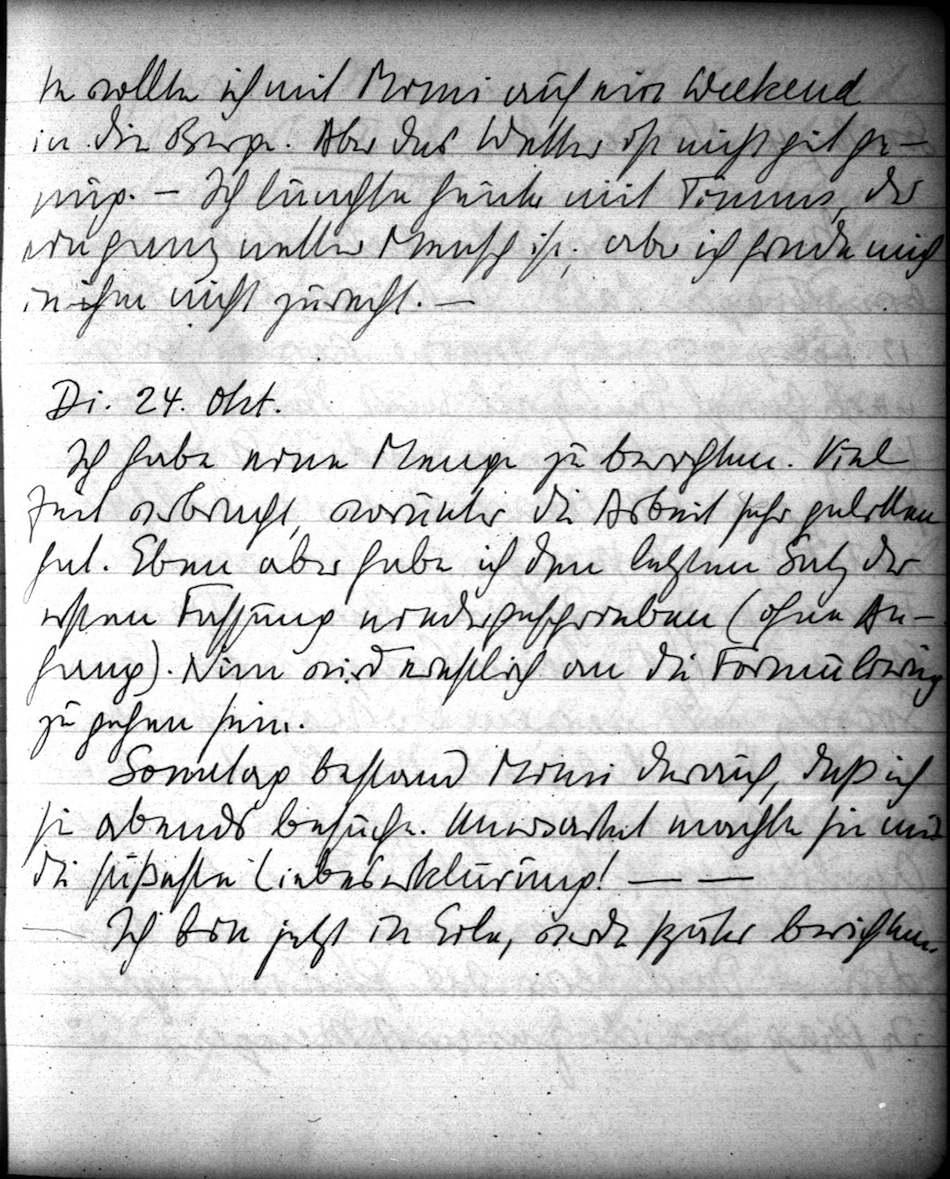 te sollte ich mit Momi auf ein Weekend
in die Berge. Aber das Wetter ist nicht gut ge-
nug. – Ich lunchte heute mit Timms, der
ein ganz netter Mensch ist; aber ich finde mich
in ihm nicht zurecht. –
Di. 24. Okt.
Ich habe eine Menge zu berichten. Viel
Zeit verbracht, worunter die Arbeit sehr gelitten
hat. Eben aber habe ich den letzten Satz der
ersten Fassung niedergeschrieben (ohne An-
hang). Nun wird ernstlich an die Formulierung
zu gehen sein.
Sonntag bestand Momi darauf, daß ich
sie abends besuche. Unerwartet machte sie mir
die süßeste Liebeserklärung! — —
Ich bin jetzt in Eile, werde später berichten.